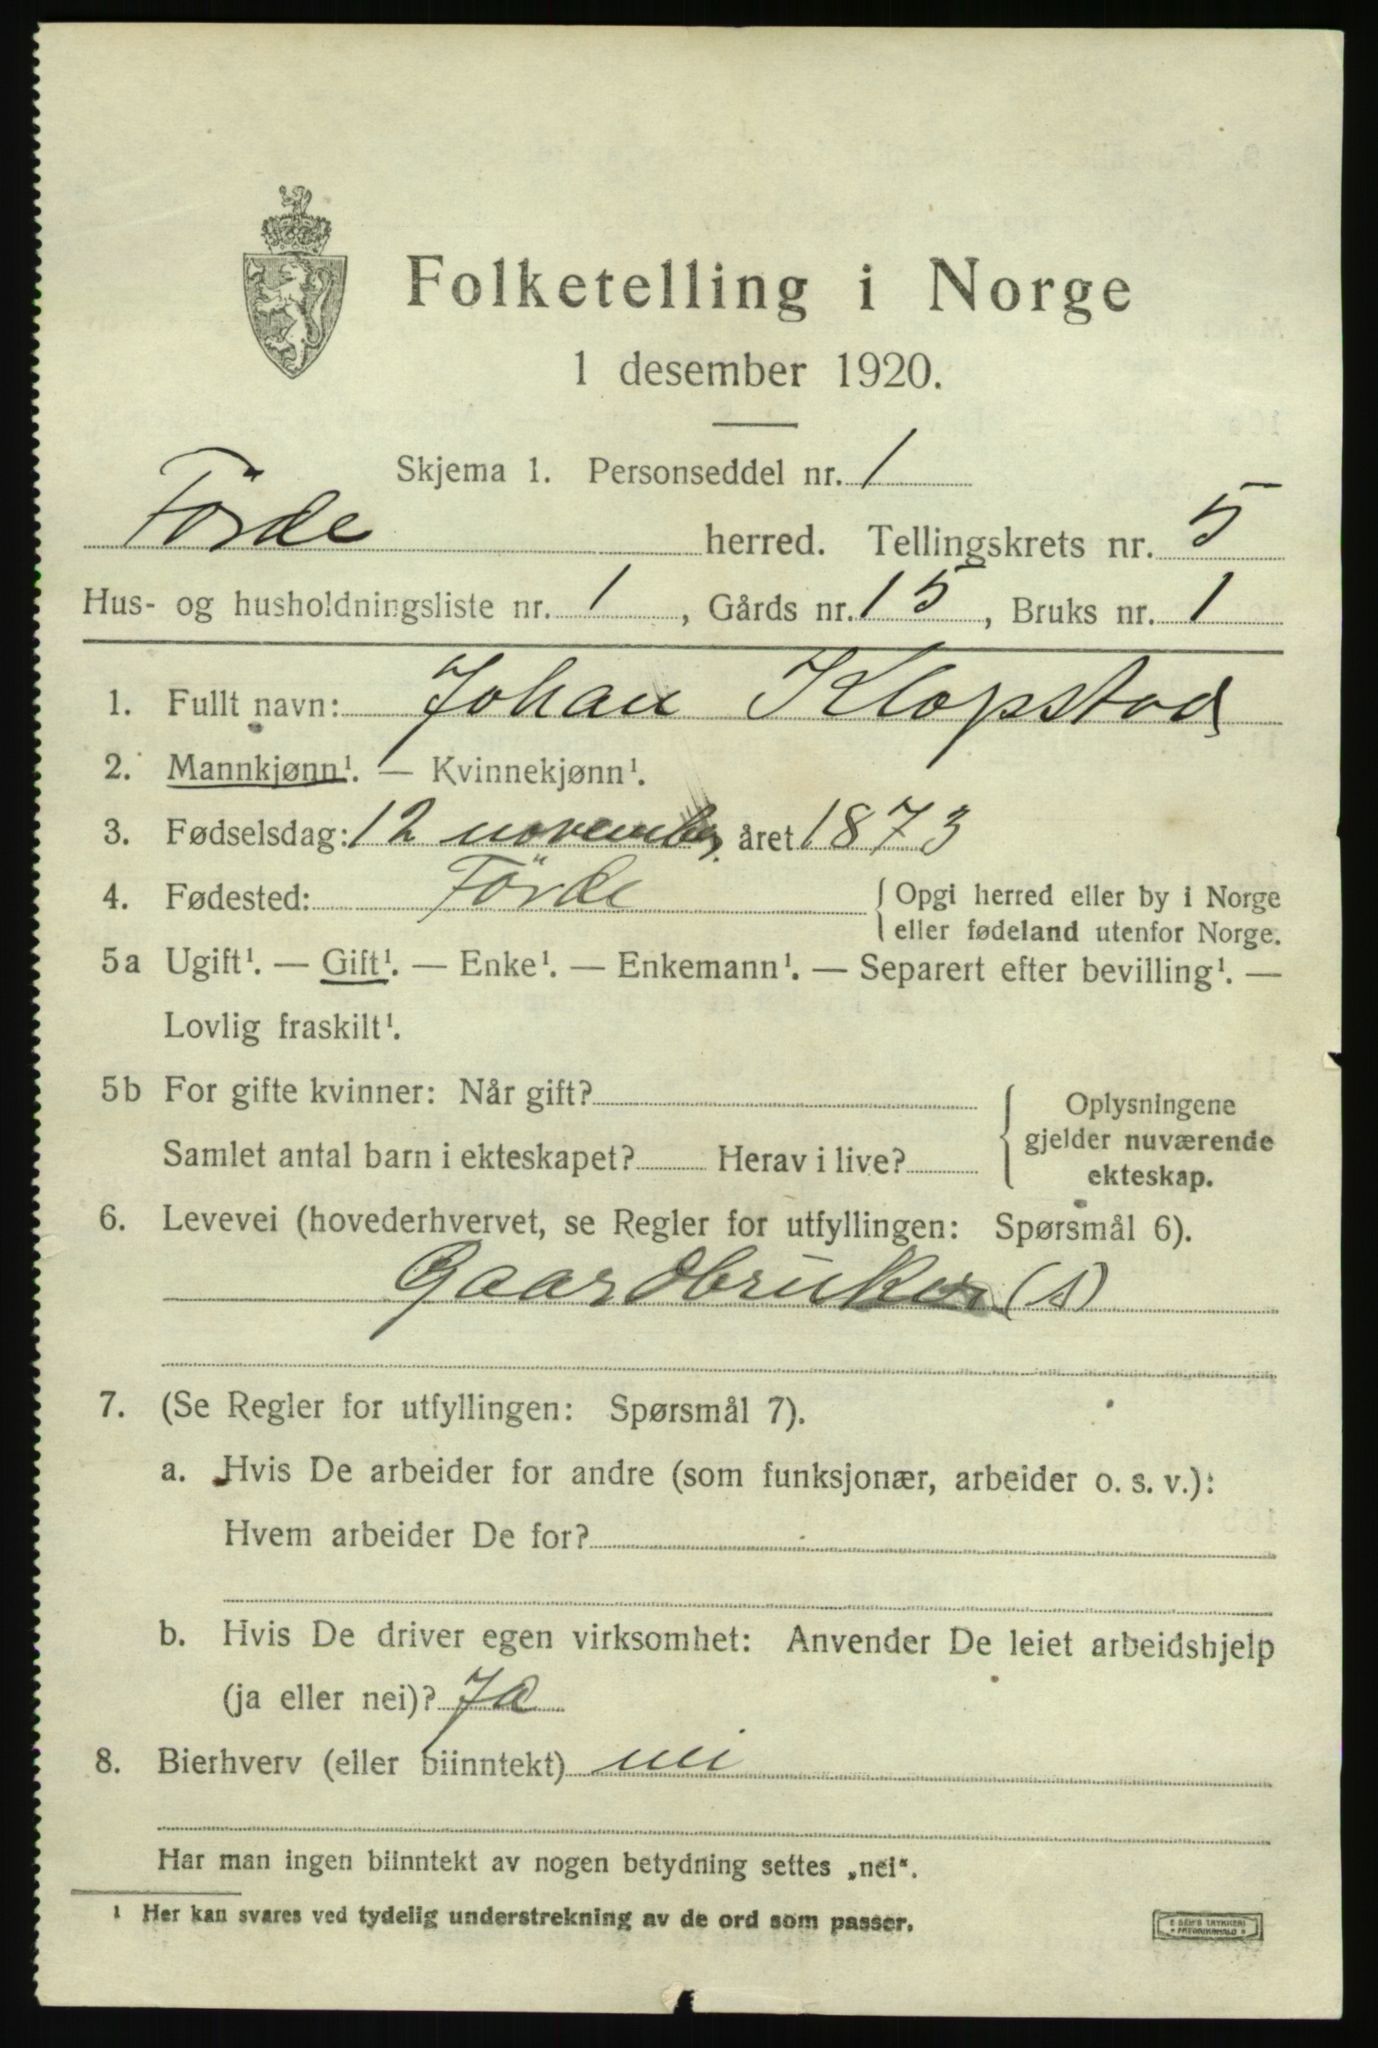 Folketelling i Norge
1 desember 1920.
Skjema 1. Personseddel nr. 1
Förde herred. Tellingskrets nr. 5
Hus- og husholdningsliste nr. 1, Gårds nr. 15, Bruks nr. 1
1. Fullt navn: Johan Klopstad
2. Mannkjønn¹. — Kvinnekjønn¹.
3. Fødselsdag: 12 november året 1873
4. Fødested: Förde { Opgi herred eller by i Norge
eller fødeland utenfor Norge.
5a Ugift¹. — Gift¹. — Enke¹. — Enkemann¹. — Separert efter bevilling¹. —
Lovlig fraskilt¹.
5b For gifte kvinner: Når gift?
Samlet antal barn i ekteskapet? Herav i live?
{ Oplysningene
gjelder nuværende
ekteskap.
6. Levevei (hovederhvervet, se Regler for utfyllingen: Spørsmål 6).
Gaardbruker (s)
7. (Se Regler for utfyllingen: Spørsmål 7).
a. Hvis De arbeider for andre (som funksjonær, arbeider o. s. v.):
Hvem arbeider De for?
b. Hvis De driver egen virksomhet: Anvender De leiet arbeidshjelp
(ja eller nei)? Ja
8. Bierhverv (eller biinntekt) nei
Har man ingen biinntekt av nogen betydning settes „nei“.
¹ Her kan svares ved tydelig understrekning av de ord som passer.